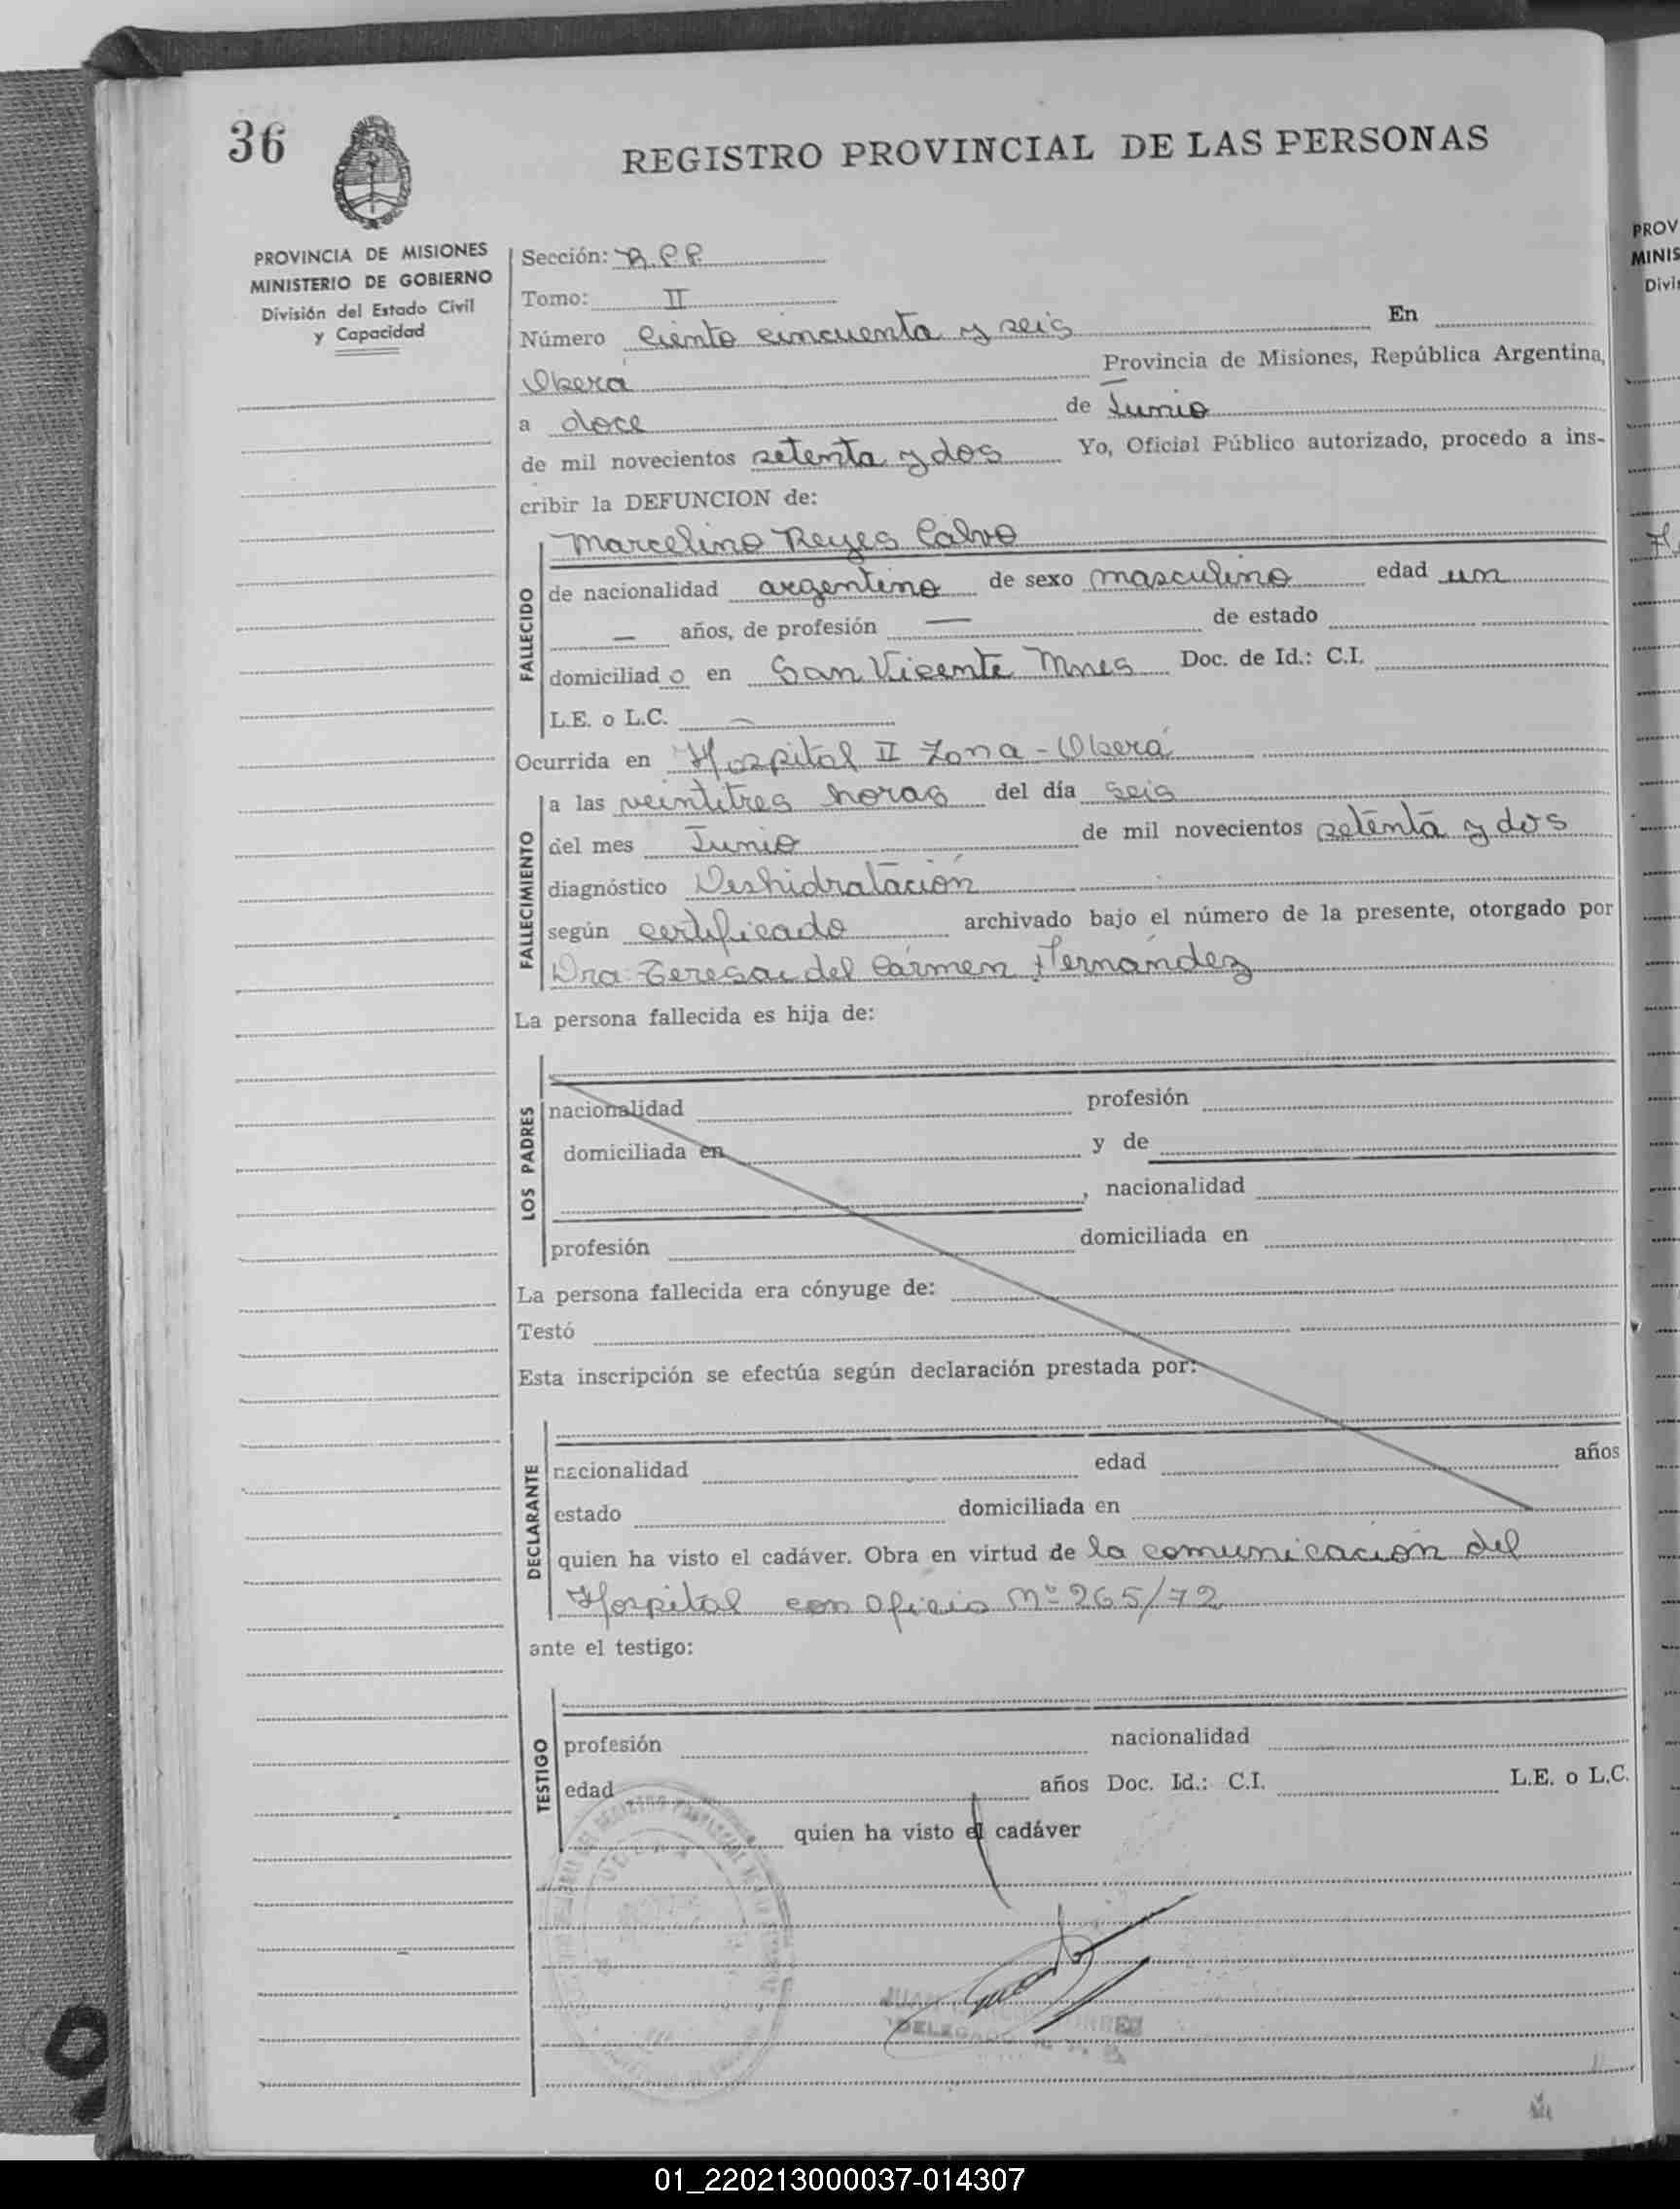 36
REGISTRO PROVINCIAL DE LAS PERSONAS
PROVINCIA DE MISIONES
MINISTERIO DE GOBIERNO
División del Estado Civil
y Capacidad
Sección: R.P.P.
Tomo: II
Número Ciento cincuenta y seis En
Oberá Provincia de Misiones, República Argentina,
a doce de Junio
de mil novecientos setenta y dos Yo, Oficial Público autorizado, procedo a ins-
cribir la DEFUNCION de:
FALLECIDO
Marcelino Reyes Calvo
de nacionalidad argentino de sexo masculino edad un
— años, de profesión — de estado
domiciliado en San Vicente Mnes Doc. de Id.: C.I.
L.E. o L.C. —
Ocurrida en Hospital II Zona - Oberá
FALLECIMIENTO
a las veintitres horas del día seis
del mes Junio de mil novecientos setenta y dos
diagnóstico Deshidratación
según certificado archivado bajo el número de la presente, otorgado por
Dra. Teresa del Cármen Fernández
La persona fallecida es hija de:
LOS PADRES
nacionalidad profesión
domiciliada en y de
, nacionalidad
profesión domiciliada en
La persona fallecida era cónyuge de:
Testó
Esta inscripción se efectúa según declaración prestada por:
DECLARANTE
nacionalidad edad años
estado domiciliada en
quien ha visto el cadáver. Obra en virtud de la comunicación del
Hospital con oficio Nº 265/72
ante el testigo:
TESTIGO
profesión nacionalidad
edad años Doc. Id.: C.I. L.E. o L.C.
quien ha visto el cadáver
JUAN
DELEGADO
PROV
MINIS
Divis
01_220213000037-014307